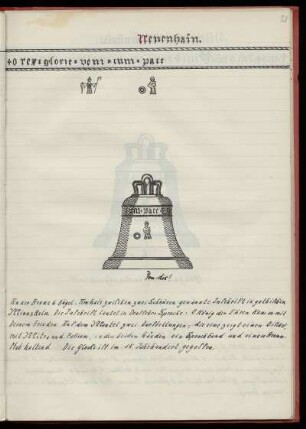 Neuenhain.
+o rex * glorie * veni * cum * pace
um * pace
An der Krone 6 Bügel. Am Hals zwischen zwei Schnüren gerandete Inschrift in gotischen
Minuskeln. Die Inschrift lautet in deutscher Sprache: O König der Ehren komm mit
deinem Frieden. Auf dem Mantel zwei Darstellungen, die eine zeigt einen Bischof
mit Mitra und
Stab haltend. Die Glocke ist im 15. Jahrhundert gegossen.